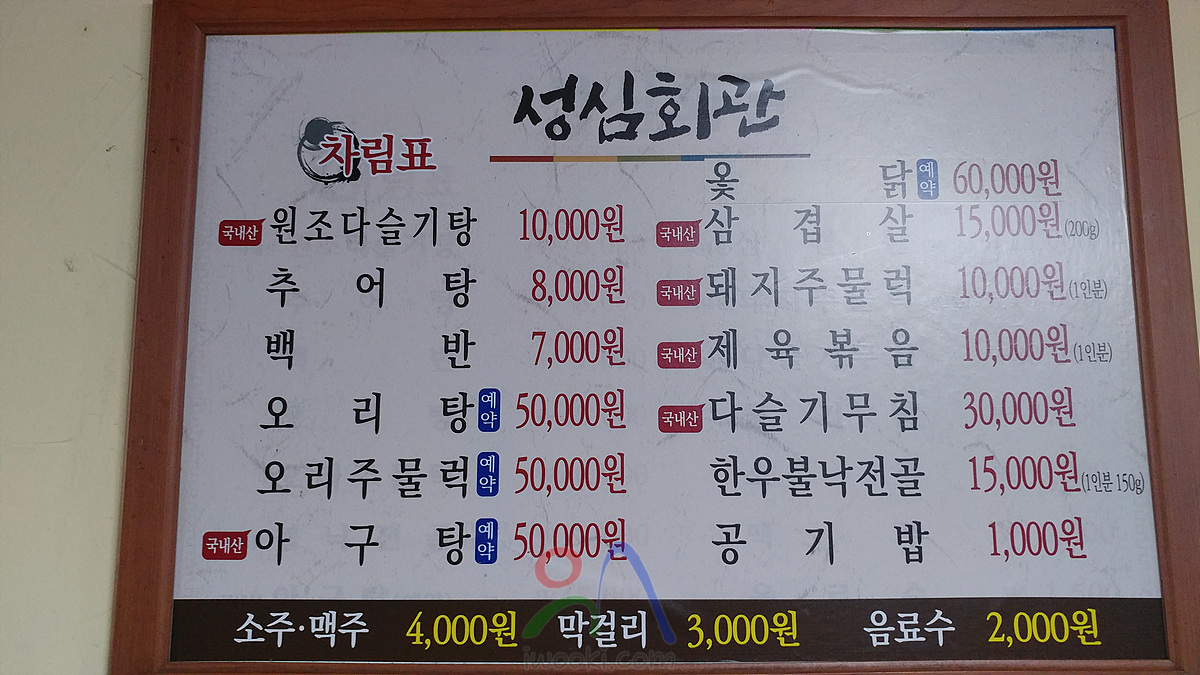 성심회관
차림표
옻닭 예약 60,000원
국내산 원조다슬기탕 10,000원
국내산 삼겹살 15,000원(200g)
추어탕 8,000원
국내산 돼지주물럭 10,000원(1인분)
백반 7,000원
국내산 제육볶음 10,000원(1인분)
오리탕 예약 50,000원
국내산 다슬기무침 30,000원
오리주물럭 예약 50,000원
한우불낙전골 15,000원(1인분 150g)
국내산 아구탕 예약 50,000원
공기밥 1,000원
소주·맥주 4,000원 막걸리 3,000원 음료수 2,000원
iwooki.com